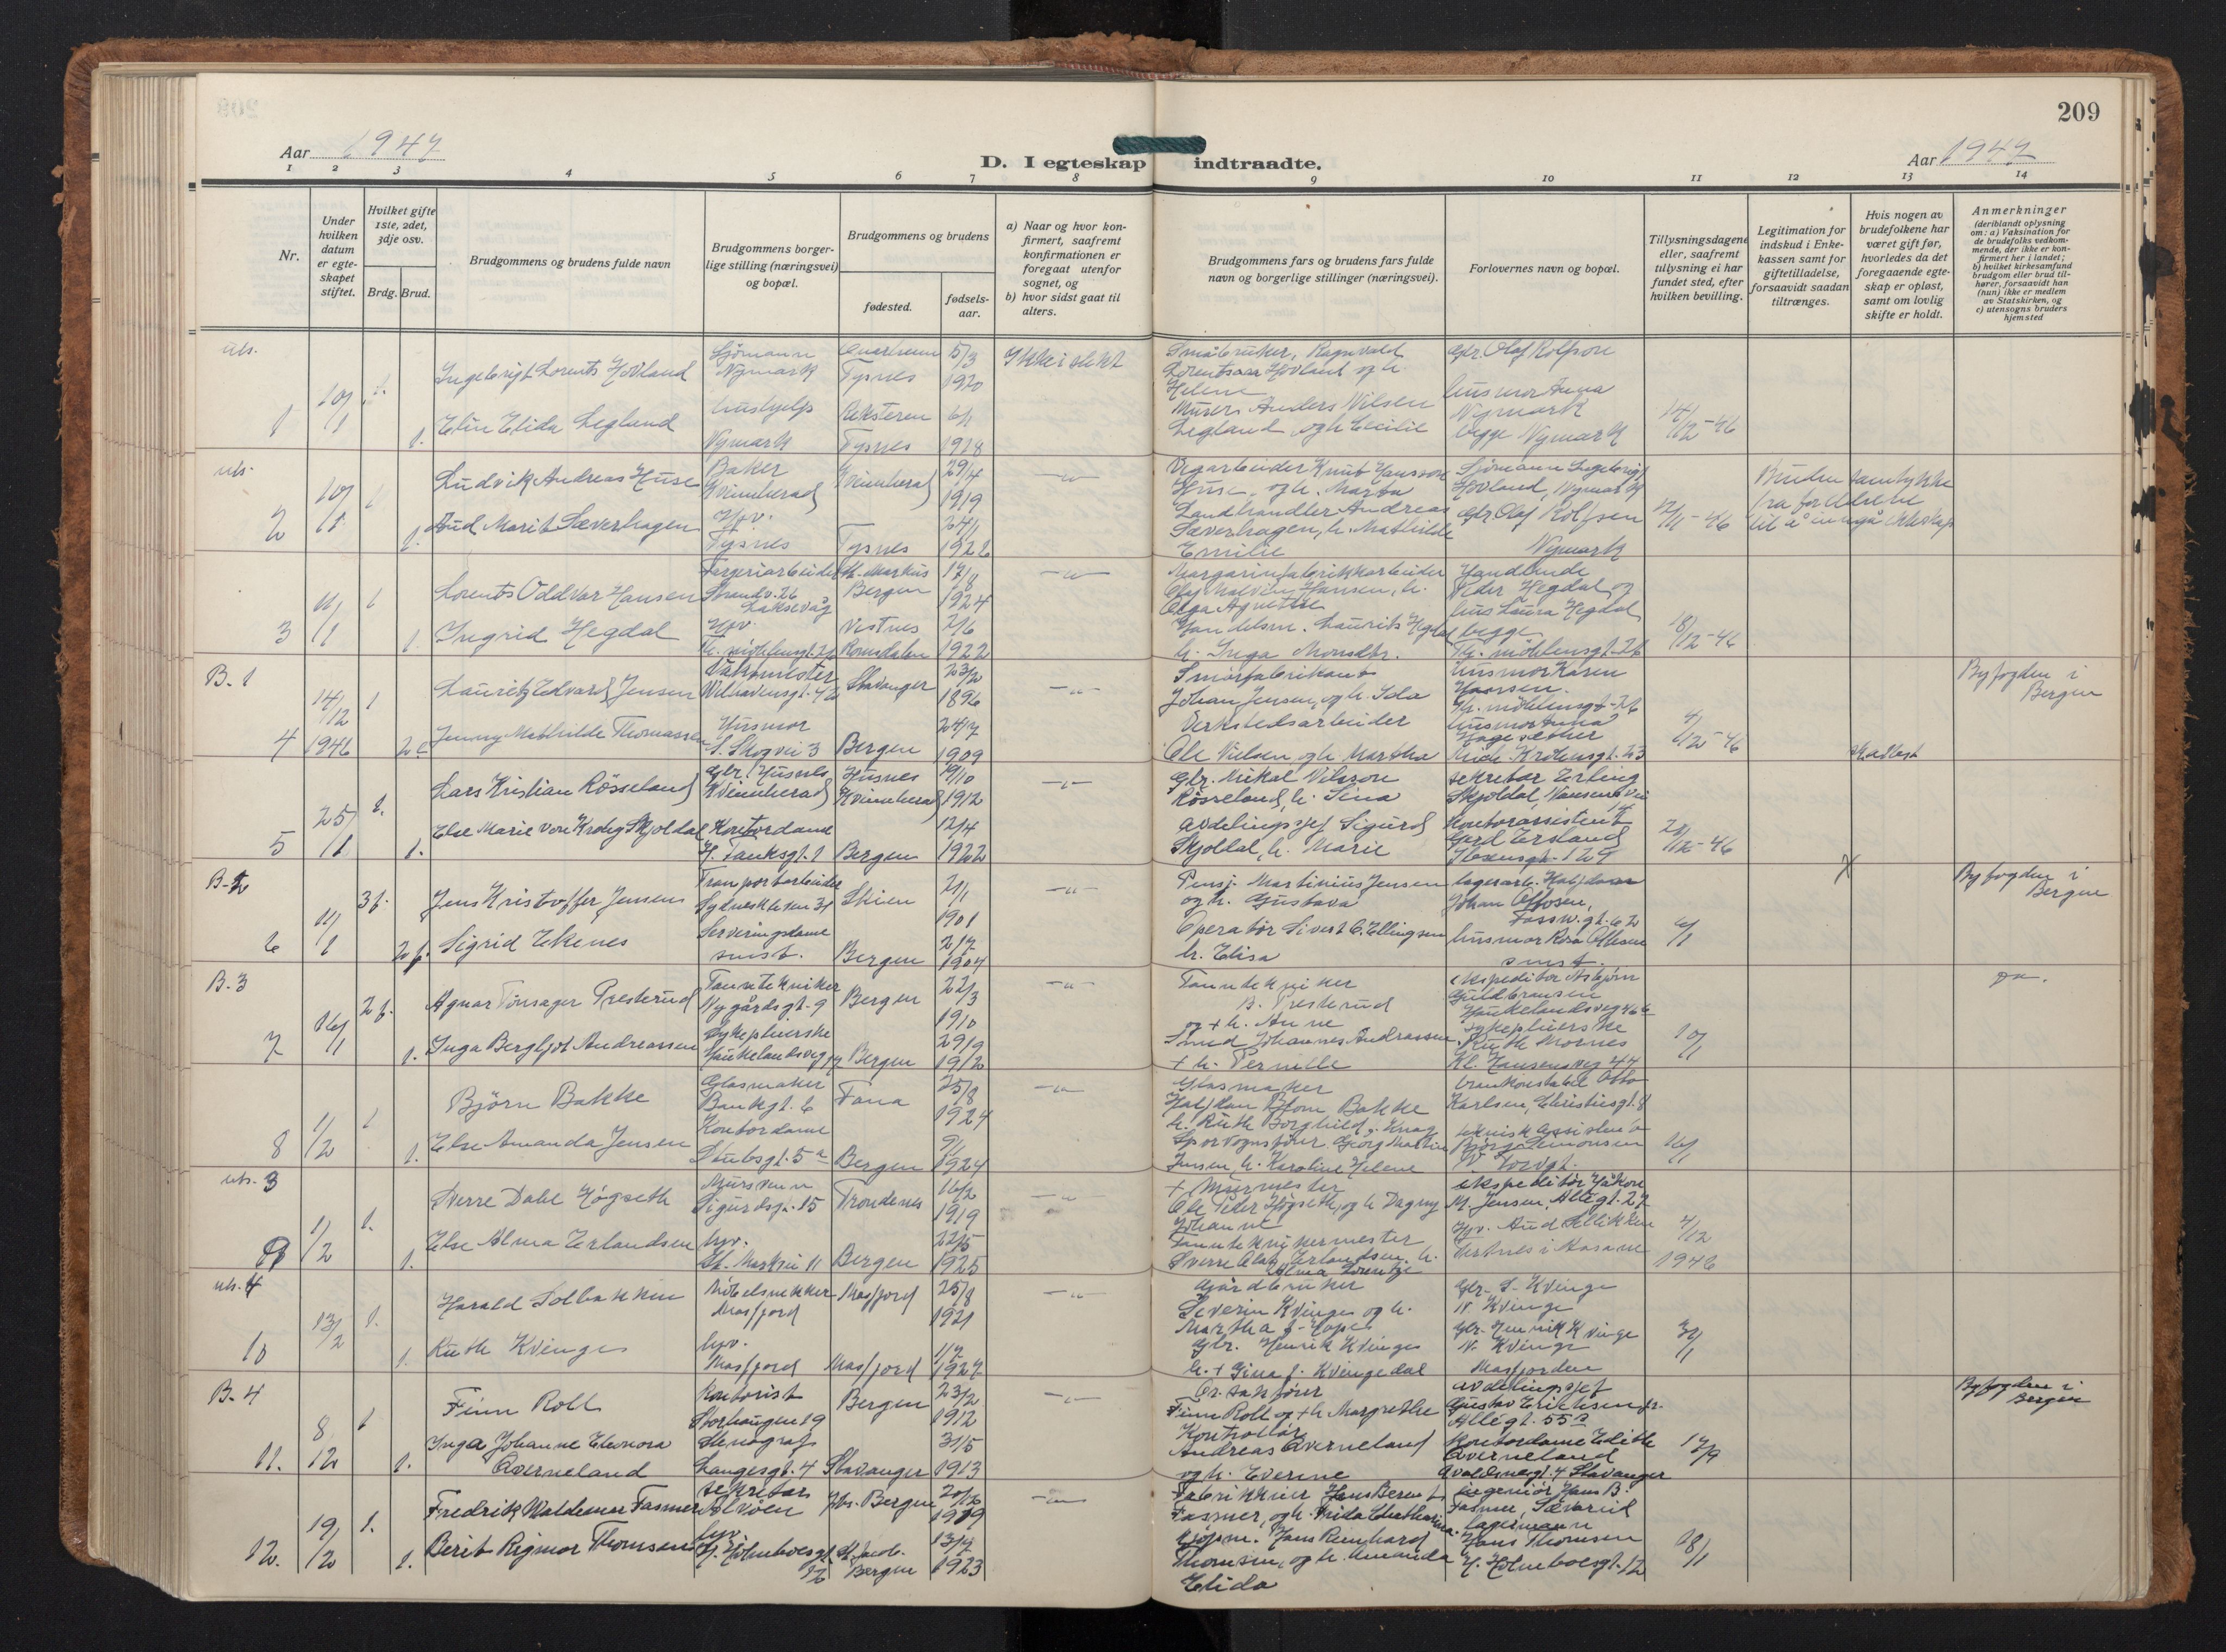 209
Aar 1947
D. I egteskap indtraadte.
Aar 1947
1 2 3 4 5 6 7 8 9 10 11 12 13 14
Nr.
Under hvilken datum er egteskapet stiftet.
Hvilket gifte 1ste, 2det, 3dje osv.
Brdg. Brud.
Brudgommens og brudens fulde navn
Brudgommens borgerlige stilling (næringsvei) og bopæl.
Brudgommens og brudens
fødested.
fødselsaar.
a) Naar og hvor konfirmert, saafremt konfirmationen er foregaat utenfor sognet, og
b) hvor sidst gaat til alters.
Brudgommens fars og brudens fars fulde navn og borgerlige stillinger (næringsvei).
Forlovernes navn og bopæl.
Tillysningsdagene eller, saafremt tillysning ei har fundet sted, efter hvilken bevilling.
Legitimation for indskud i Enkekassen samt for giftetilladelse, forsaavidt saadan tiltrænges.
Hvis nogen av brudefolkene har været gift før, hvorledes da det foregaaende egteskap er opløst, samt om lovlig skifte er holdt.
Anmerkninger
(deriblandt oplysning om: a) Vaksination for de brudefolks vedkommende, der ikke er konfirmert her i landet;
b) hvilket kirkesamfund brudgom eller brud tilhører, forsaavidt han (hun) ikke er medlem av Statskirken, og
c) utensogns bruders hjemsted
uts.
1 10/1 1. Ingebrigt Lorents Hovland Sjömann Nymark Tysnes 5/3 1920 Ikke i slekt
Småbruker, Ragnvald Lorentsen Hovland og h. Helene
Gbr. Olaf Rolfson
1. Elin Elida Legland hushjelp Nymark Reksteren Tysnes 6/1 1928
Murer Anders Nilsen Legland, og h. Cecilie
husmor Anna Nymark begge Nymark
14/12-46
uts.
2 10/1 1 Ludvik Andreas Huse Baker Kvinnherad Kvinnherad 29/4 1919
Vegarbeider Knut Hansson Huse, og h. Marta
Sjömann Ingebrigt Hovland, Nymark
1. Aud Marit Sæverhagen Hpv. Tysnes Tysnes 24/1 1928
Landhandler Andreas Sæverhagen, h. Mathilde Emilie
Gbr. Olaf Rolfsen Nymark
12/11-46
Bruden samtykke fra foreldrene til å inngå ekteskap
3 11/1 1 Lorents Oddvar Hansen Fargeriarbeider Strandv. 26 Laksevåg St. Markus Bergen 17/8 1924
Margarinfabrikkarbeider Olaf Malvin Hansen, h. Olga Agnethe
Handlende Peder Hegdal og
1. Ingrid Hegdal Hpv. Th. möhlensgt. 26 Vestnes Romsdalen 2/6 1922
Handelsm. Laurits Hegdal h. Inga Monsdtr.
hus Laura Hegdal begge Th. möhlensgt. 26
18/12-46
B. 1
4 14/12 1946 1 Lauritz Edvard Jensen Vaktmester Welhavensgt. 46 Stavanger 23/2 1896
Smörfabrikant Johan Jensen, og h. Ida
husmor Karen Hansen. Th. möhlensgt-26
Byfogden i Bergen
2 Jenny Mathilde Thomassen Husmor S. Skogvei 3 Bergen 24/7 1909
Verkstedsarbeider Ole Nielsen og h. Martha
husmor Anna Hagesether Krohnsgt. 23
4/12-46
5 25/1 1. Lars Kristian Rösseland Gbr. Husnes Kvinnherad Husnes Kvinnherad 19/10 1912
Gbr. Mikal Nilsson Rösseland, h. Sina
sekretær Erling Skjoldal, Nansens vei 14
1. Else Marie von Krohg Skjoldal Kontordame H. Tanksgt. 1 Bergen 12/4 1922
avdelingssjef Sigurd Skjoldal, h. Marie
Kontorassistent Gerd Ersland Ibsensgt. 127
28/12-46
B-2
6 11/1 3f. Jens Kristoffer Jensen Transportarbeider Sydneskleven 31 Skien 21/1 1901
Pensj. Martinius Jensen og h. Gustava
lagerarb. Johan Ottosen, Fossw.gt. 62
X
Byfogden i Bergen
2f. Sigrid Ekenes Serveringsdame smst. Bergen 2/7 1904
Operatör Sivert C. Ellingsen h. Elisa
husmor Rosa Ottosen smst.
6/1
B.3
7 16/1 2f. Agnar Tönsager Presterud Tanntekniker Nygårdsgt. 9 Bergen 22/3 1910
Tanntekniker B. Presterud og +h. Anne
ekspeditör Asbjörn Guldbransen Haukelandsveg 46
1. Inga Bergljot Andreassen sykepleierske Haukelandsveg 14 Bergen 29/9 1912
Smed Johannes Andreassen + h. Pernille
sykepleierske Ruth Mornes Kl. Hansens veg 44
10/1
8 1/2 1 Björn Bakke Glasmaker Bankgt. 6 Fana 25/8 1924
Glasmaker Halfdan Blom Bakke h. Ruth Borghild f. Krag
brannkonstabel Otto Karlsen, Christiesgt. 8
1. Else Amanda Jensen Kontordame Stubsgt. 5a Bergen 9/1 1924
Sporvognsförer Georg Martin Jensen, h. Karoline Helene
teknisk assistent Björg Simonsen N. Torvgt.
16/1
uts. 3
9 1/2 1. Sverre Dahl Högseth Mursvenn Sigurdsgt. 15 Trondenes 16/2 1919
+ Murmester Ole Peder Högseth, og h. Dagny Johanne
ekspeditör Håkon M. Jensen, Allegt. 27
1. Else Alma Erlandsen hpv. St. Markvei 11 Bergen 22/5 1925
Tannteknikermester Sverre Olaf Erlandsen, h. Alma Lorentze
Hpv. Aud Sellikken Vertnes i Åsane
4/12 1946
uts. 4
10 13/2 1. Harald Solbakken Möbelsnekker Masfjord Masfjord 25/8 1921
Gårdbruker Severin Kvinge og h. Martha f. Hope
Gbr. S. Kvinge N. Kvinge
1. Ruth Kvinge hpv. Masfjord Masfjord 1/7 1927
Gbr. Henrik Kvinge h. + Gina f. Kvingedal
Gbr. Henrik Kvinge N. Kvinge Masfjorden
31/1
B. 4
11. 8/12 1 Finn Roll Kontorist Storhaugen 19 Bergen 23/2 1912
Or. sakförer Finn Roll og +h Margrethe
avdelingssjef Gustav Erichsen jr. Allegt. 55a
Byfogden i Bergen
1. Inga Johanne Eleonora Qverneland Stenograf Langesgt. 4 Stavanger 31/5 1913
Kontrollör Andreas Qverneland og h. Everine
kontordame Edith Qverneland Avaldsnesgt. 4 Stavanger
17/9
12. 19/2 1. Fredrik Waldemar Fasmer sekretær Alvöen Bergen 20/12 1919
Fabrikkeier Hans Berent Fasmer, og h. Frida Chatharina
ingeniör Hans B. Fasmer,
1. Berit Rigmor Thomsen hpv. H. Holmboesgt. 12 St. Jacob. Bergen 13/7 1923
Kjöpm. Hans Reinhard Thomsen, og h. Amanda Elida
lagermann Hans Thomsen H. Holmboesgt. 12
28/1